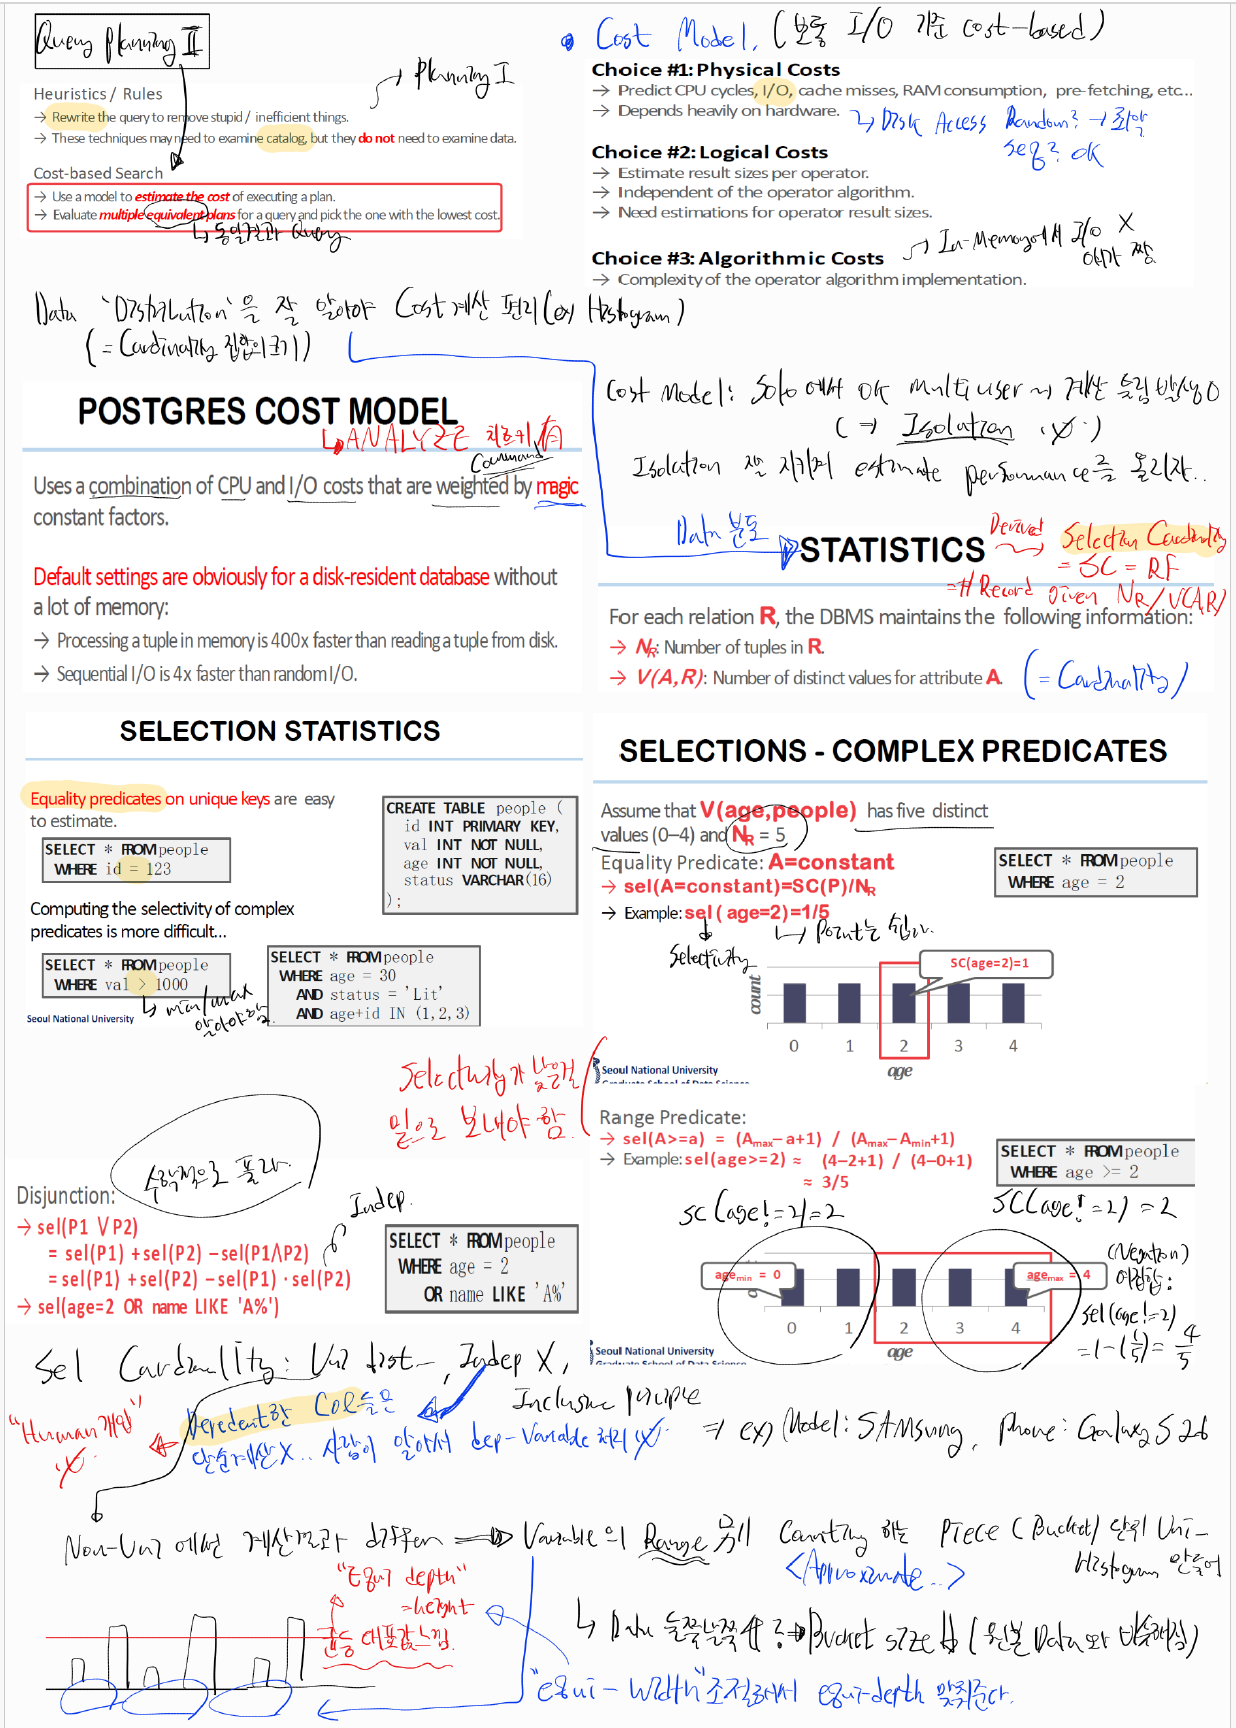 Query Planning II
→ Planning I
Heuristics / Rules
→ Rewrite the query to remove stupid / inefficient things.
→ These techniques may need to examine catalog, but they do not need to examine data.
Cost-based Search
→ Use a model to estimate the cost of executing a plan.
→ Evaluate multiple equivalent plans for a query and pick the one with the lowest cost.
↳ 동일결과 Query
• Cost Model. (보통 I/O 기준 cost-based)
Choice #1: Physical Costs
→ Predict CPU cycles, I/O, cache misses, RAM consumption, pre-fetching, etc...
→ Depends heavily on hardware.
↳ Disk Access Random? → 최악
Seq? OK
Choice #2: Logical Costs
→ Estimate result sizes per operator.
→ Independent of the operator algorithm.
→ Need estimations for operator result sizes.
→ In-Memory에서 I/O X
Choice #3: Algorithmic Costs
→ Complexity of the operator algorithm implementation.
Data 'Distribution'을 잘 알아야 Cost 계산 편리 (ex) Histogram)
(= Cardinality 집합의 크기)
POSTGRES COST MODEL
↳ ANALYZE
Command
Uses a combination of CPU and I/O costs that are weighted by magic
constant factors.
Default settings are obviously for a disk-resident database without
a lot of memory:
→ Processing a tuple in memory is 400x faster than reading a tuple from disk.
→ Sequential I/O is 4x faster than random I/O.
Cost Model: Solo에서 OK Multi user → 계산 틀림 발생 O
(⇒ Isolation X)
Isolation 잘 지키며 estimate performance를 올리자..
Data 분포
STATISTICS
Derived → Selection Cardinality
= SC = RF
= # Record Given NR/V(A,R)
For each relation R, the DBMS maintains the following information:
→ NR: Number of tuples in R.
→ V(A,R): Number of distinct values for attribute A. (= Cardinality)
SELECTION STATISTICS
Equality predicates on unique keys are easy
to estimate.
SELECT * FROM people
WHERE id = 123
CREATE TABLE people (
id INT PRIMARY KEY,
val INT NOT NULL,
age INT NOT NULL,
status VARCHAR(16)
);
Computing the selectivity of complex
predicates is more difficult...
SELECT * FROM people
WHERE val > 1000
↳ min/max
알아야 함
SELECT * FROM people
WHERE age = 30
AND status = 'Lit'
AND age+id IN (1,2,3)
Seoul National University
SELECTIONS - COMPLEX PREDICATES
Assume that V(age,people) has five distinct
values (0–4) and NR = 5
Equality Predicate: A=constant
→ sel(A=constant)=SC(P)/NR
→ Example: sel( age=2)=1/5
SELECT * FROM people
WHERE age = 2
Selectivity
↳ Point는 쉽다.
SC(age=2)=1
count
0 1 2 3 4
age
Seoul National University
Graduate School of Data Science
Selectivity가 낮은걸
밑으로 보내야 함.
Range Predicate:
→ sel(A>=a) = (Amax–a+1) / (Amax–Amin+1)
→ Example: sel(age>=2) ≈ (4–2+1) / (4–0+1)
≈ 3/5
SELECT * FROM people
WHERE age >= 2
SC(age!=2)=2
SC(age!=2)=2
agemin = 0
agemax = 4
0 1 2 3 4
age
(Negation)
여집합:
sel(age!=2)
=1-(1/5)=4/5
Seoul National University
Graduate School of Data Science
수학적으로 풀라.
Disjunction:
→ sel(P1 ∨ P2)
= sel(P1) + sel(P2) – sel(P1∧P2)
= sel(P1) + sel(P2) – sel(P1) · sel(P2)
→ sel(age=2 OR name LIKE 'A%')
Indep.
SELECT * FROM people
WHERE age = 2
OR name LIKE 'A%'
Sel Cardinality: Uni dist–, Indep X,
Inclusive principle
"Human 개입"
X
Dependent한 Col들은
단순계산X.. 사람이 알아서 dep-Variable 처리 X
⇒ ex) Model: SAMSUNG, Phone: Galaxy S 26
Non-Uni 에선 계산결과 differen ⇒ Variable의 Range 묶어 Counting 하는 Piece (Bucket) 단위 Uni-
Histogram 만들어
<Approximate..>
"Equi depth"
=height
균등 대표값 느낌.
↳ Data 들쭉날쭉 ? → Bucket size ↓ (원본 Data와 비슷해짐)
"equi-Width" 조절해서 equi-depth 맞춰준다.